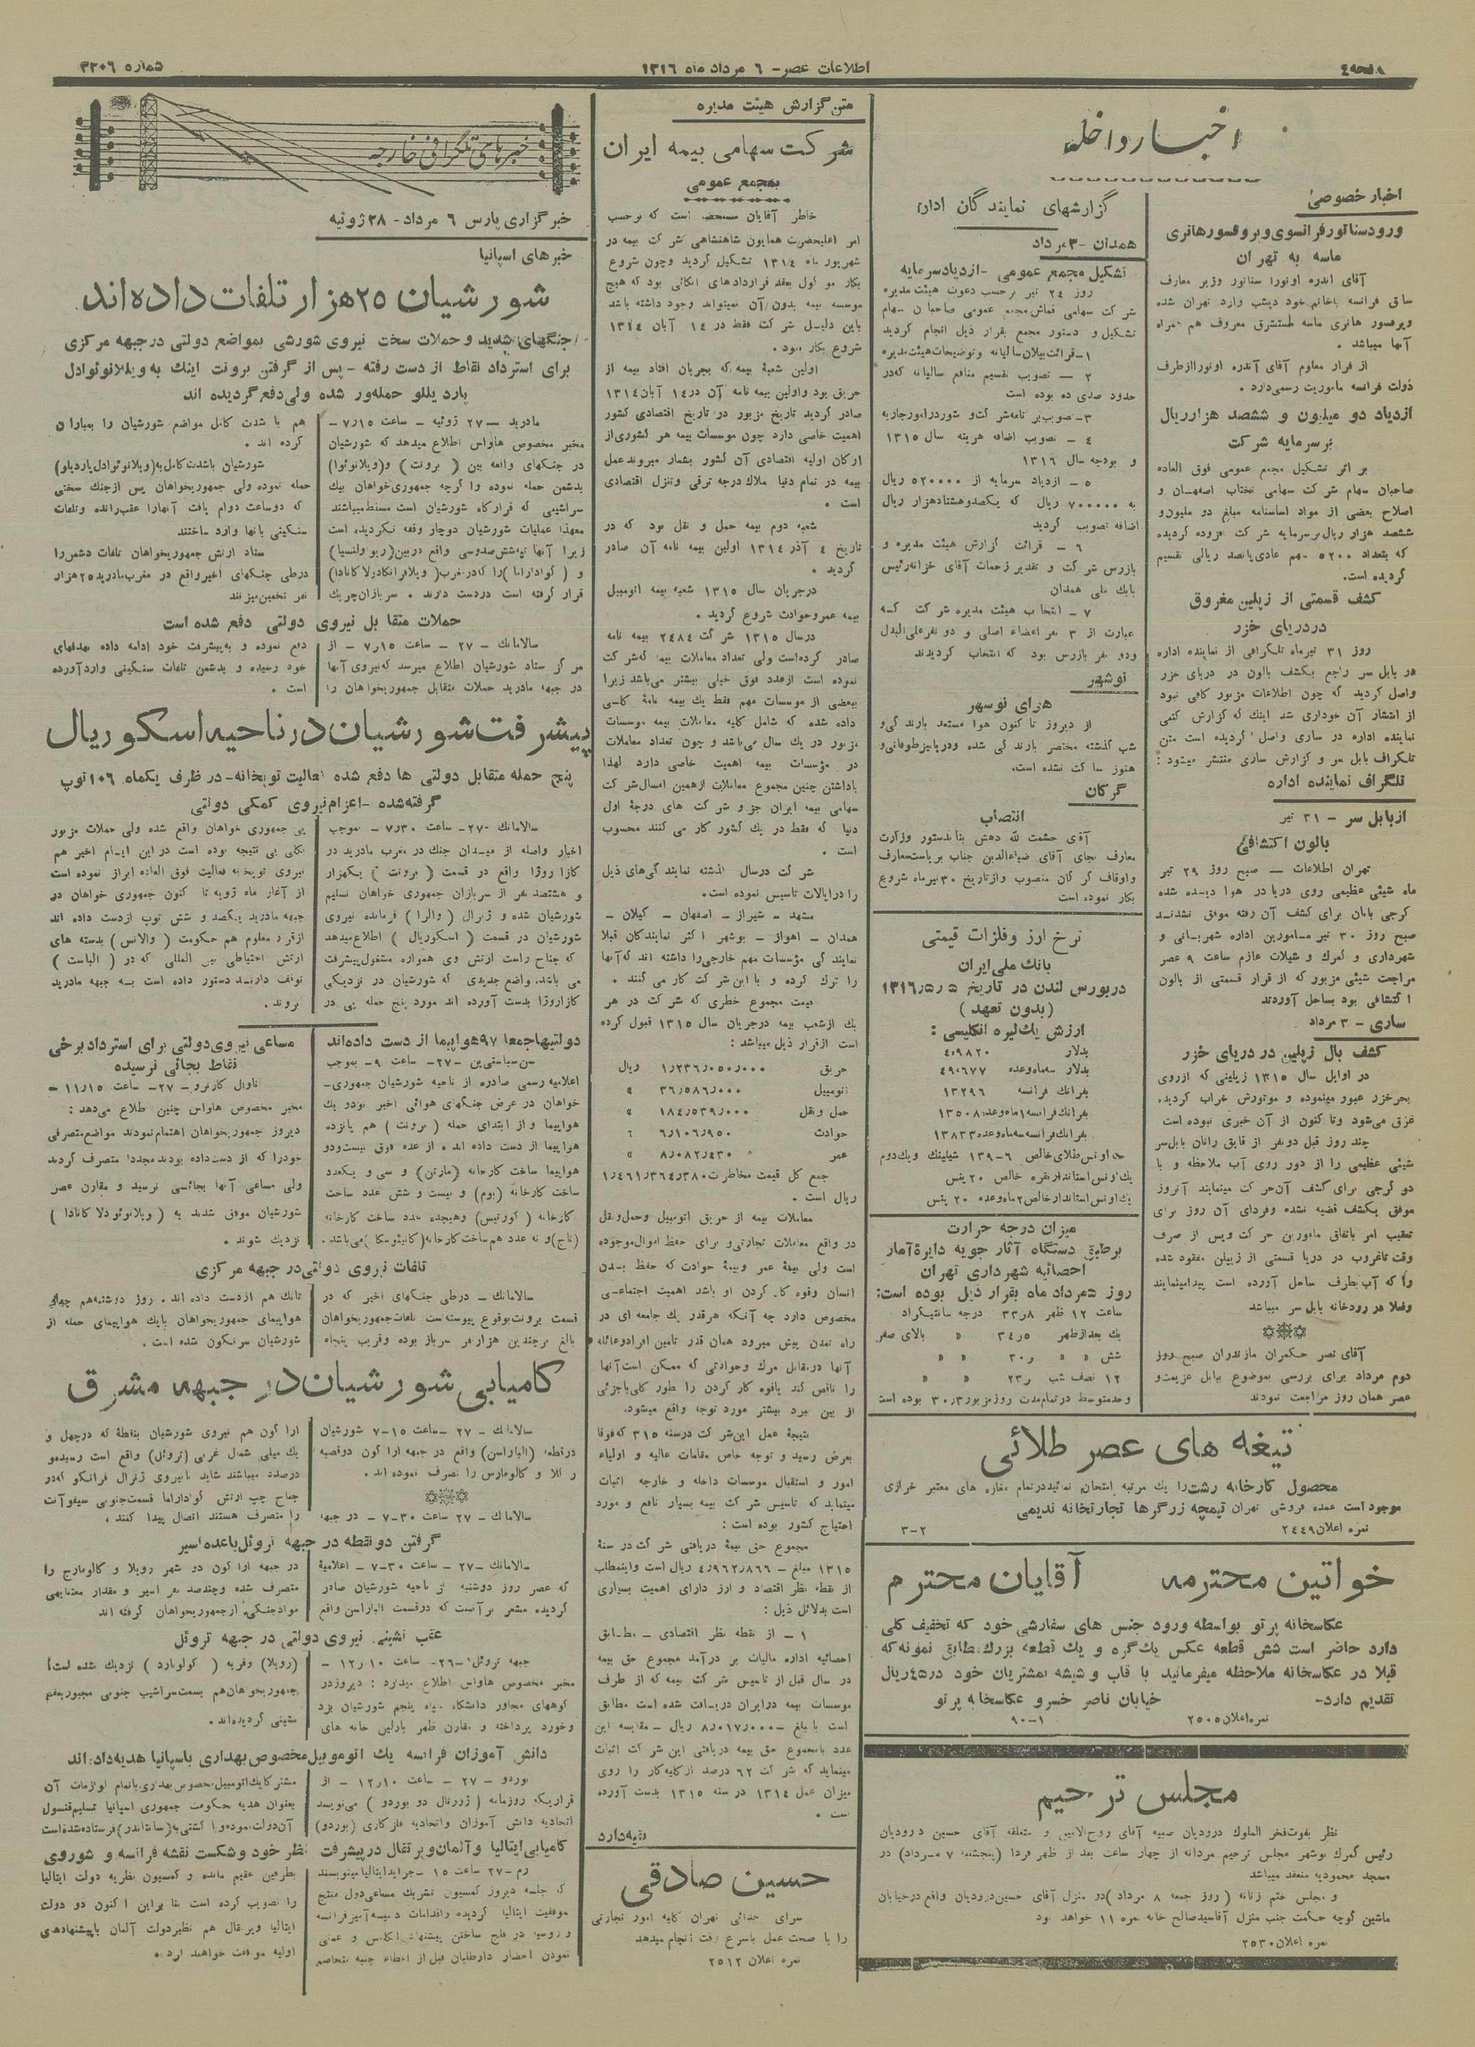 صفحه ٤
اطلاعات عصر - ٦ مرداد ماه ١٣١٦
شماره ٣٢٠٦
اخبار داخله
اخبار خصوصی
ورود سناتور فرانسوی و پروفسور هانری
ماسه به تهران
آقای اندره اونورا سناتور وزیر معارف
سابق فرانسه باخانم خود دیشب وارد تهران شده
وپرفسور هانری ماسه مستشرق معروف هم همراه
آنها میباشد.
از قرار معلوم آقای آندره اونورا از طرف
دولت فرانسه ماموریت رسمی دارد.
ازدیاد دو میلیون و ششصد هزار ریال
بر سرمایه شرکت
بر اثر تشکیل مجمع عمومی فوق العاده
صاحبان سهام شرکت سهامی نختاب اصفهان و
اصلاح بعضی از مواد اساسنامه مبلغ دو ملیون و
ششصد هزار ریال بر سرمایه شرکت افزوده گردیده
که بتعداد ٥٢٠٠ سهم عادی پانصد ریالی تقسیم
گردیده است.
کشف قسمتی از زپلین مغروق
در دریای خزر
روز ٣١ تیرماه تلگرافی از نماینده اداره
در بابل سر راجع بکشف بالون در دریای خزر
واصل گردید که چون اطلاعات مزبور کافی نبود
از انتشار آن خودداری شد اینک که گزارش کتبی
نماینده اداره در ساری واصل گردیده است متن
تلگراف بابل سر و گزارش ساری منتشر میشود:
تلگراف نماینده اداره
از بابل سر - ٣١ تیر
بالون اکتشافی
تهران اطلاعات - صبح روز ٢٩ تیر
ماه شیئی عظیمی روی دریا در هوا دیده شده
کرجی بانان برای کشف آن رفته موفق نشدند
صبح روز ٣٠ تیر مامورین اداره شهربانی و
شهرداری و گمرک و شیلات عازم ساعت ٩ عصر
مراجعت شیئی مزبور که از قرار قسمتی از بالون
اکتشافی بود بساحل آوردند
ساری - ٣ مرداد
کشف بال زپلین در دریای خزر
در اوایل سال ١٣١٥ زپلینی که از روی
بحر خزر عبور مینموده و موتورش خراب گردیده
غرق می‌شود وتا کنون از آن خبری نبوده است
چند روز قبل دو نفر از قایق رانان بابل سر
شیئی عظیمی را از دور روی آب ملاحظه و با
دو کرجی برای کشف آن حرکت مینمایند آنروز
موفق بکشف قضیه نشده وفردای آن روز برای
تعقیب امر باتفاق مامورین حرکت وپس از صرف
وقت تا غروب در دریا قسمتی از زپلین مفقود شده
را که آب بطرف ساحل آورده است پیدا مینمایند
وفعلا در رودخانه بابل سر میباشد
آقای نصر حکمران مازندران صبح روز
دوم مرداد برای بررسی بموضوع ببابل عزیمت و
عصر همان روز مراجعت نمودند
گزارشهای نمایندگان اداره
همدان - ٣ مرداد
تشکیل مجمع عمومی - ازدیاد سرمایه
روز ٢٤ تیر برحسب دعوت هیئت مدیره
شرکت سهامی قماش مجمع عمومی صاحبان سهام
تشکیل و دستور مجمع بقرار ذیل انجام گردید
١- قرائت بیلان سالیانه و توضیحات هیئت مدیره
٢ - تصویب تقسیم منافع سالیانه که در
حدود صدی ده بوده است
٣- تصویب برنامه شرکت و شور در امور جاریه
٤ - تصویب اضافه هزینه سال ١٣١٥
و بودجه سال ١٣١٦
٥ - ازدیاد سرمایه از ٥٢٠٠٠٠ ریال
به ٧٠٠٠٠٠ ریال که یکصد و هشتاد هزار ریال
اضافه تصویب گردید
٦ - قرائت گزارش هیئت مدیره و
بازرس شرکت و تقدیر زحمات آقای خزانه رئیس
بانک ملی همدان
٧ - انتخاب هیئت مدیره شرکت که
عبارت از ٣ نفر اعضاء اصلی و دو نفر علی البدل
و دو نفر بازرس بود که انتخاب گردیدند
نوشهر
هوای نوشهر
از دیروز تا کنون هوا مستعد بارندگی و
شب گذشته مختصر بارندگی شده ودریا نیز طوفانی و
هنوز ساکت نشده است.
گرگان
انتصاب
آقای حشمت الله دهش بنا بدستور وزارت
معارف بجای آقای ضیاءالدین جناب بریاست معارف
واوقاف گرگان منصوب و از تاریخ ٣٠ تیرماه شروع
بکار نموده است
نرخ ارز و فلزات قیمتی
بانک ملی ایران
در بورس لندن در تاریخ ١٣١٦/٥/٥
(بدون تعهد)
ارزش یک لیره انگلیسی:
بدلار ٤٫٩٨٢٠
بدلار سه ماه وعده ٤٫٩٠٦٧٧
بفرانک فرانسه ١٣٢٩٦
بفرانک فرانسه ١ ماه وعده ١٣٥٠٨
بفرانک فرانسه سه ماه وعده ١٣٨٣٣
یک اونس طلای خالص ٦-١٣٩ شیلینگ و یک دوم
یک اونس استاندارد نقره خالص ٢٠ پنس
یک اونس استاندارد خالص ٢ ماه وعده ٢٠ پنس
میزان درجه حرارت
برطبق دستگاه آثار جویه دایرهٔ آمار
احصائیه شهرداری تهران
روز ٥ مرداد ماه بقرار ذیل بوده است:
ساعت ١٢ ظهر ٣٣٫٨ درجه سانتیگراد
یک بعد از ظهر ٣٤٫٥ » بالای صفر
شش » » ٣٠٫ » »
١٢ نصف شب ٢٣٫ » »
وحد متوسط در تمام مدت روز مزبور ٣٠٫٣ بوده است
تیغه های عصر طلائی
محصول کارخانه رشت را یک مرتبه امتحان نمائید در تمام مغازه های معتبر خرازی
موجود است عمده فروشی تهران تیمچه زرگرها تجارتخانه ندیمی
نمره اعلان ٢٤٤٩ ٣-٢
خواتین محترمه آقایان محترم
عکاسخانه پرتو بواسطه ورود جنس های سفارشی خود که تخفیف کلی
دارد حاضر است شش قطعه عکس یک گره و یک قطعه بزرگ مطابق نمونه که
قبلا در عکاسخانه ملاحظه میفرمائید با قاب و شیشه بمشتریان خود در ٤٥ ریال
تقدیم دارد - خیابان ناصر خسرو عکاسخانه پرتو
نمره اعلان ٢٥٠٥ ٩٠-١
مجلس ترحیم
نظر بفوت فخر الملوک درودیان صبیه آقای روح الامین و متعلقه آقای حسین درودیان
رئیس گمرک بوشهر مجلس ترحیم مردانه از چهار ساعت بعد از ظهر فردا (پنجشنبه ٧ مرداد) در
مسجد محمودیه منعقد میباشد
و مجلس ختم زنانه (روز جمعه ٨ مرداد) در منزل آقای حسین درودیان واقع در خیابان
ماشین کوچه حکمت جنب منزل آقا سید صالح خانه نمره ١١ خواهد بود
نمره اعلان ٢٥٣٠
متن گزارش هیئت مدیره
شرکت سهامی بیمه ایران
بمجمع عمومی
خاطر آقایان مستحضر است که برحسب
امر اعلیحضرت همایون شاهنشاهی شرکت بیمه در
شهریور ماه ١٣١٤ تشکیل گردید وچون شروع
بکار موکول بعقد قراردادهای اتکائی بود که هیچ
موسسه بیمه بدون آن نمیتواند وجود داشته باشد
باین دلیل شرکت فقط در ١٤ آبان ١٣١٤
شروع بکار نمود.
اولین شعبهٔ بیمه که بجریان افتاد بیمه از
حریق بود واولین بیمه نامه آن در ١٤ آبان ١٣١٤
صادر گردید تاریخ مزبور در تاریخ اقتصادی کشور
اهمیت خاصی دارد چون موسسات بیمه هر کشوری از
ارکان اولیه اقتصادی آن کشور بشمار میروند عمل
بیمه در تمام دنیا ملاک درجه ترقی و تنزل اقتصادی
است.
شعبه دوم بیمه حمل و نقل بود که در
تاریخ ٤ آذر ١٣١٤ اولین بیمه نامه آن صادر
گردید.
در جریان سال ١٣١٥ شعبه بیمه اتومبیل
بیمه عمر وحوادث شروع گردید.
در سال ١٣١٥ شرکت ٢٤٨٤ بیمه نامه
صادر کرده است ولی تعداد معاملات بیمه که شرکت
نموده است از عدد فوق خیلی بیشتر می‌باشد زیرا
ببعضی از موسسات مهم فقط یک بیمه نامهٔ کلی
داده شده که شامل کلیه معاملات بیمه موسسات
مزبور در یک سال می‌باشد و چون تعداد معاملات
در مؤسسات بیمه اهمیت خاصی دارد لهذا
باداشتن چنین مجموع معاملات از همین امسال شرکت
سهامی بیمه ایران جزو شرکت های درجهٔ اول
دنیا که فقط در یک کشور کار می کنند محسوب
است.
شرکت در سال گذشته نمایندگی های ذیل
را در ایالات تاسیس نموده است.
مشهد - شیراز - اصفهان - گیلان -
همدان - اهواز - بوشهر اکثر نمایندگان قبلا
نمایندگی مؤسسات مهم خارجی را داشته اند که آنها
را ترک کرده و با این شرکت کار می کنند.
قیمت مجموع خطری که شرکت در هر
یک از شعب بیمه در جریان سال ١٣١٥ قبول کرده
است از قرار ذیل میباشد:
حریق ١٫٢٣٦٫٠٥٠٫٠٠٠ ریال
اتومبیل ٣٦٫٥٨٦٫٠٠٠ »
حمل ونقل ١٨٤٫٥٣٩٫٠٠٠ »
حوادث ٦٫١٠٦٫٩٥٠ »
عمر ٨٫٠٨٢٫٤٣٠ »
جمع کل قیمت مخاطرات ١٫٤٦١٫٣٦٤٫٣٨٠
ریال است.
معاملات بیمه از حریق اتومبیل وحمل ونقل
در واقع معاملات تجارتی و برای حفظ اموال موجوده
است ولی بیمهٔ عمر وبیمهٔ حوادث که حفظ بدن
انسان وقوه کار کردن او باشد اهمیت اجتماعی
مخصوص دارد چه آنکه هر قدر یک جامعه ای در
راه تمدن پیش میرود همان قدر تامین افراد و عائله
آنها در مقابل مرگ وحوادثی که ممکن است آنها
را ناقص کند یا قوه کار کردن را بطور کلی یا جزئی
از بین ببرد بیشتر مورد توجه واقع میشود.
نتیجهٔ عمل این شرکت در سنه ٣١٥ که فوقا
بعرض رسید و توجه خاص مقامات عالیه و اولیاء
امور و استقبال موسسات داخله و خارجه اثبات
مینماید که تاسیس شرکت بیمه بسیار نافع و مورد
احتیاج کشور بوده است:
مجموع حق بیمهٔ دریافتی شرکت در سنهٔ
١٣١٥ مبلغ - ٤٫٩٦٢٫٨٦٦ ریال است واینمطلب
از نقطه نظر اقتصاد و ارز دارای اهمیت بسیاری
است بدلائل ذیل:
١ - از نقطه نظر اقتصادی - مطابق
احصائیه اداره مالیات بر درآمد مجموع حق بیمه
در سال قبل از تاسیس شرکت بیمه که از طرف
موسسات بیمه در ایران دریافت شده است مطابق
است با مبلغ - ٨٫٠١٧٫٠٠٠ ریال - مقایسه این
عدد با مجموع حق بیمه دریافتی این شرکت اثبات
مینماید که شرکت ٦٢ درصد از کلیه کار را روی
میزان عمل ١٣١٤ در سنه ١٣١٥ بدست آورده
است.
بقیه دارد
حسین صادقی
سرای حاجی تهران کلیه امور تجارتی
را با صحت عمل باسرع وقت انجام میدهد
نمره اعلان ٢٥١٢
خبرهای تلگرافی خارجه
خبرگزاری پارس ٦ مرداد - ٢٨ ژوئیه
خبرهای اسپانیا
شورشیان ٢٥ هزار تلفات داده اند
جنگهای شدید و حملات سخت نیروی شورشی بمواضع دولتی در جبهه مرکزی
برای استرداد نقاط از دست رفته - پس از گرفتن برونت اینک به ویلانوئوادل
پاردیللو حمله‌ور شده ولی دفع گردیده اند
مادرید - ٢٧ ژوئیه - ساعت ٧/١٥ -
مخبر مخصوص هاواس اطلاع میدهد که شورشیان
در جنگهای واقعه بین (برونت) و (ویلانوئوا)
بدشمن حمله نموده وا گرچه جمهوری خواهان بیک
سراشیبی که قرارگاه شورشیان است مسلط میباشند
معهذا عملیات شورشیان دوچار وقفه نگردیده است
زیرا آنها پوشش صدوسی واقع در بین (ریو ولنسیا)
و (گواداراما) را که در غرب (ویلافرانکادلا کانادا)
قرار گرفته است در دست دارند. سربازان چریک
هم با شدت کامل مواضع شورشیان را بمباران
کرده اند.
شورشیان باشدت کامل به (ویلانوئوادل پاردیلو)
حمله نموده ولی جمهوریخواهان پس از جنگ سختی
که دو ساعت دوام یافت آنها را عقب رانده و تلفات
سنگینی بآنها وارد ساختند
ستاد ارتش جمهوریخواهان تلفات دشمن را
درطی جنگهای اخیر واقع در مغرب مادرید ٢٥ هزار
نفر تخمین میزنند
حملات متقابل نیروی دولتی دفع شده است
سالامانک - ٢٧ - ساعت ٧/١٥ - از
مرکز ستاد شورشیان اطلاع میرسد که نیروی آنها
در جبهه مادرید حملات متقابل جمهوریخواهان را
دفع نموده و به پیشرفت خود ادامه داده بهدفهای
خود رسیده و بدشمن تلفات سنگینی وارد آورده
است.
پیشرفت شورشیان در ناحیه اسکوریال
پنج حمله متقابل دولتی ها دفع شده فعالیت توپخانه - در ظرف یکماه ١٠٦ توپ
گرفته شده - اعزام نیروی کمکی دولتی
سالامانک - ٢٧ - ساعت ٧/٣٠ - بموجب
اخبار واصله از میدان جنگ در مغرب مادرید در
کازا روژا واقع در قسمت (برونت) یکهزار
و هشتصد نفر از سربازان جمهوری خواهان تسلیم
شورشیان شده و ژنرال (والرا) فرمانده نیروی
شورشیان در قسمت (اسکوریال) اطلاع میدهد
که جناح راست ارتش وی همواره مشغول پیشرفت
می باشد. واضع جدیدی که شورشیان در نزدیکی
کازا روژا بدست آورده اند مورد پنج حمله پی در
پی جمهوری خواهان واقع شده ولی حملات مزبور
بکلی بی نتیجه بوده است در این ایام اخیر هم
نیروی توپخانه فعالیت فوق العاده ابراز نموده است
از آغاز ماه ژویه تا کنون جمهوری خواهان در
جبهه مادرید یکصد و شش توپ از دست داده اند
از قرار معلوم هم حکومت (والانس) بدسته های
ارتش احتیاطی بین المللی که در (الباست)
توقف دارند دستور داده است به جبهه مادرید
بروند.
دولتیها جمعا ٩٧ هواپیما از دست داده‌اند
سن سباستین - ٢٧ - ساعت ٩ - بموجب
اعلامیه رسمی صادره از ناحیه شورشیان جمهوری
خواهان در عرض جنگهای هوائی اخیر نود و یک
هواپیما و از ابتدای حمله (برونت) هم پانزده
هواپیما از دست داده اند. از عده فوق بیست و دو
هواپیما ساخت کارخانه (مارتن) و سی و یکعدد
ساخت کارخانه (بوم) و بیست و شش عدد ساخت
کارخانه (کورتیس) وهیجده عدد ساخت کارخانه
(تاج) و نه عدد هم ساخت کارخانه (کانیئوسکا) می‌باشد.
مساعی نیروی دولتی برای استرداد برخی
نقاط بجائی نرسیده
ناوال کارنرو - ٢٧ - ساعت ١١/١٥ -
مخبر مخصوص هاواس چنین اطلاع می‌دهد:
دیروز جمهوریخواهان اهتمام نمودند مواضع متصرفی
خود را که از دست داده بودند مجددا متصرف گردند
ولی مساعی آنها بجائی نرسید و مقارن عصر
شورشیان موفق شدند به (ویلانوئودلا کانادا)
نزدیک شوند.
تلفات نیروی دولتی در جبهه مرکزی
سالامانک - درطی جنگهای اخیر که در
قسمت برونت بوقوع پیوسته است تلفات جمهوریخواهان
بالغ بر چندین هزار نفر سرباز بوده وقریب پنجاه
تانک هم از دست داده اند. روز دوشنبه هم چهار
هواپیمای جمهوریخواهان با یک هواپیمای حمله از
شورشیان سرنگون شده است.
کامیابی شورشیان در جبهه مشرق
سالامانک - ٢٧ - ساعت ١٥-٧ شورشیان
در قطعه (البارسن) واقع در جبهه اراگون دو قصبه
ر بللا و کالومارس را تصرف نموده اند.
سالامانک - ٢٧ ساعت ٣٠-٧ - در جبهه
اراگون هم نیروی شورشیان بنقطهٔ که در چهل و
یک میلی شمال غربی (تروئل) واقع است رسیده و
درصدد میباشند شاید بانیروی ژنرال فرانکو که در
جناح چپ ارتش گواداراما قسمت جنوبی سیفوآنت
را متصرف هستند اتصال پیدا کنند.
گرفتن دو نقطه در جبهه تروئل باعده اسیر
سالامانک - ٢٧ - ساعت ٣٠-٧ - اعلامیهٔ
که عصر روز دوشنبه از ناحیه شورشیان صادر
گردیده مشعر بر آنست که در قسمت البارسن واقع
در جبهه اراگون دو شهر رویلا و کالومارج را
متصرف شده وچند صد نفر اسیر و مقدار معتنابهی
مواد جنگی از جمهوریخواهان گرفته اند
عقب نشینی نیروی دولتی در جبهه تروئل
جبهه تروئل - ٢٦ - ساعت ١٢/١٠ -
مخبر مخصوص هاواس اطلاع میدهد: دیروز در
کوههای مجاور دانشگاه سپاه پنجم شورشیان بزد
وخورد پرداخته و مقارن ظهر باولین خانه های
(رویلا) و قریه (کولومارد) نزدیک شده است
جمهوریخواهان هم بسمت سراشیب جنوبی مجبور بعقب
نشینی گردیده‌اند.
دانش آموزان فرانسه یک اتوموبیل مخصوص بهداری باسپانیا هدیه داده اند
بوردو - ٢٧ - ساعت ١٢/١٠ - از
قراریکه روزنامه (ژورنال دو بوردو) می‌نویسد
اتحادیه دانش آموزان و اتحادیه فلزکاری (بوردو)
مشترکا یک اتومبیل مخصوص بهداری باتمام لوازمات آن
بعنوان هدیه حکومت جمهوری اسپانیا تسلیم قنسول
آن دولت نموده و با کشتی به (سانتاندر) فرستاده شده است
کامیابی ایتالیا و آلمان و پرتقال در پیشرفت نظر خود و شکست نقشه فرانسه و شوروی
رم - ٢٧ ساعت ١٥ - جراید ایتالیا مینویسند
که جلسه دیروز کمیسیون تشریک مساعی دول منتج
موفقیت ایتالیا گردیده و اقدامات دسیسه آمیز فرانسه
و روسیه در فلج ساختن پیشنهاد انگلیس و عملی
نمودن احضار داوطلبان قبل از اعطاء جنبه متخاصم
بطرفین عقیم مانده و کمیسیون نظریه دولت ایتالیا
را تصویب کرده است بنا بر این اکنون دو دولت
ایتالیا و پرتقال هم نظیر دولت آلمان با پیشنهادهای
اولیه موافقت خواهند کرد.